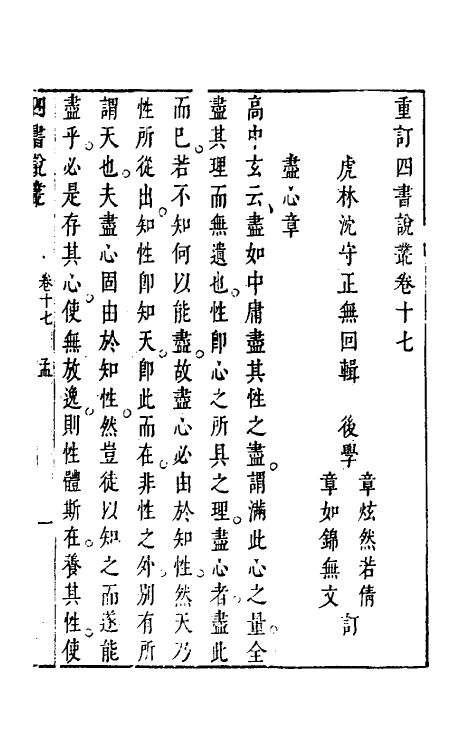 重訂四書說叢卷十七
虎林沈守正無回輯　後學
章炫然若倩
章如錦無文
訂
盡心章
高中玄云盡如中庸盡其性之盡謂滿此心之量全
盡其理而無遺也性即心之所具之理盡心者盡此
而已若不知何以能盡故盡心必由於知性然天乃
性所從出知性即知天即此而在非性之外別有所
謂天也夫盡心固由於知性然豈徒以知之而遂能
盡乎必是存其心使無放逸則性體斯在養其性使
四書說叢　卷十七　孟　一